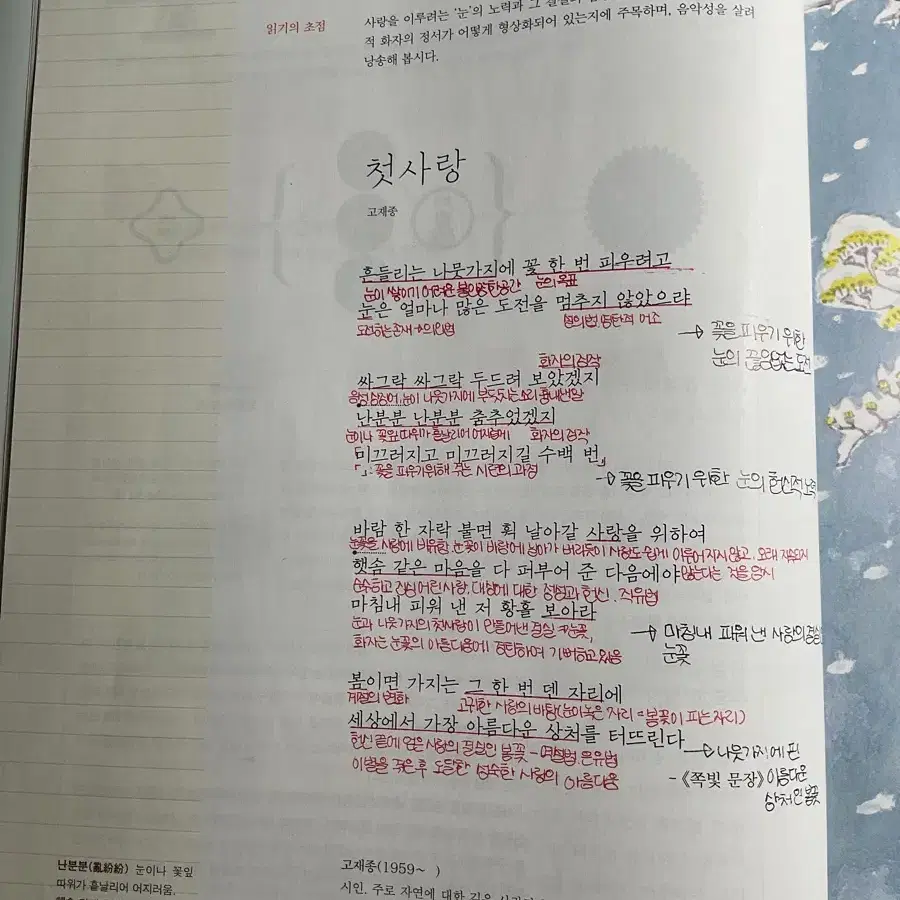 읽기의 초점
사랑을 이루려는 '눈'의 노력과 그
적 화자의 정서가 어떻게 형상화되어 있는지에 주목하며, 음악성을 살려
낭송해 봅시다.
첫사랑
고재종
흔들리는 나뭇가지에 꽃 한 번 피우려고
눈이 쌓이기 어려운 불안정한 공간 눈의 목표
눈은 얼마나 많은 도전을 멈추지 않았으랴
도전하는 존재 → 의인법 설의법, 영탄적 어조
→ 꽃을 피우기 위한
눈의 끊임없는 도전
화자의 짐작
싸그락 싸그락 두드려 보았겠지
음성상징어, 눈이 나뭇가지에 부딪치는 소리 흉내낸 말
난분분 난분분 춤추었겠지
눈이나 꽃잎 따위가 흩날리어 어지럽게 화자의 짐작
미끄러지고 미끄러지길 수백 번」
「」: 꽃을 피우기 위해 겪는 시련의 과정
→ 꽃을 피우기 위한 눈의 헌신적 노력
바람 한 자락 불면 휙 날아갈 사랑을 위하여
눈꽃을 사랑에 비유함. 눈꽃이 바람에 날아가 버리듯이 사랑도 쉽게 이루어지지 않고, 오래 지속되지
햇솜 같은 마음을 다 퍼부어 준 다음에야 않는다는 것을 암시
순수하고 진심어린 사랑, 대상에 대한 정성과 헌신, 직유법
마침내 피워 낸 저 황홀 보아라
눈과 나뭇가지의 첫사랑이 만들어낸 결실 = 눈꽃,
화자는 눈꽃의 아름다움에 경탄하며 기뻐하고 있음
→ 마침내 피워 낸 사랑의 결실
눈꽃
봄이면 가지는 그 한 번 덴 자리에
계절의 변화 고귀한 사랑의 바탕(눈이 녹은 자리 = 봄꽃이 피는 자리)
세상에서 가장 아름다운 상처를 터뜨린다
헌신 끝에 얻은 사랑의 결실인 봄꽃 - 역설법, 은유법
이별을 겪은 후 도달한 성숙한 사랑의 아름다움
→ 나뭇가지에 핀
아름다운
상처인 봄꽃
- 《쪽빛 문장》
난분분(亂紛紛) 눈이나 꽃잎
따위가 흩날리어 어지러움.
고재종(1959~ )
시인. 주로 자연에 대한 깊은